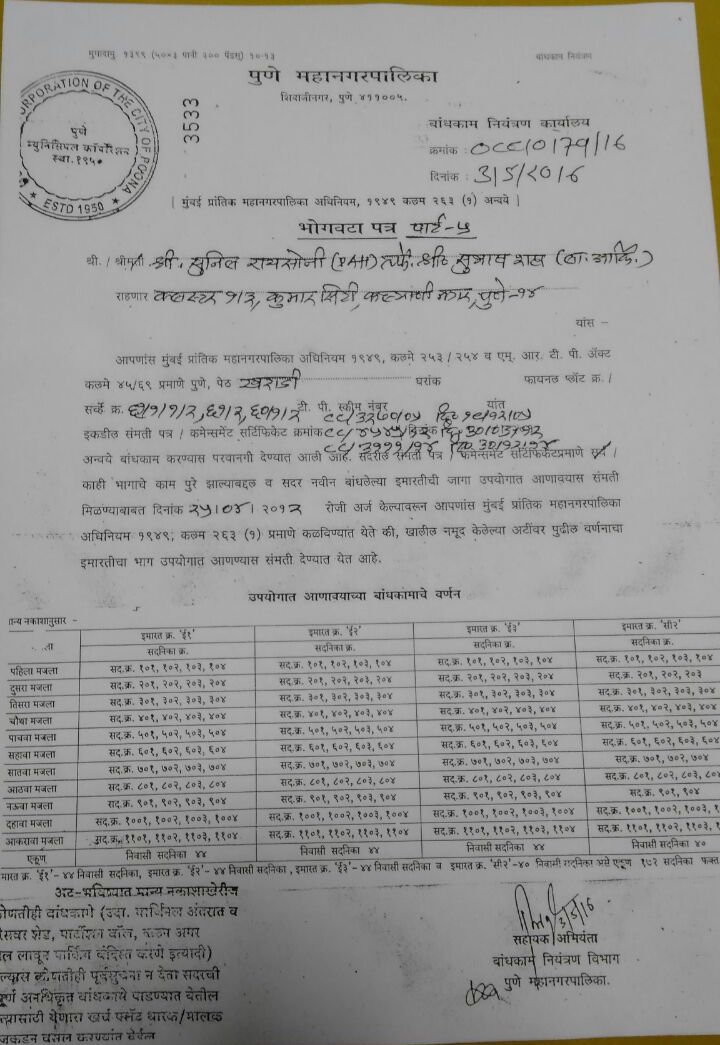 मुपाप्रामु १३९९ (५०×३ पानी २०० पॅडस्) १०-१३ बांधकाम नियंत्रण
पुणे महानगरपालिका
शिवाजीनगर, पुणे ४११००५.
CORPORATION OF THE CITY OF POONA
पुणे
म्युनिसिपल कॉर्पोरेशन
स्था. १९५०
ESTD 1950
3533
बांधकाम नियंत्रण कार्यालय
क्रमांक : OCC/0179/16
दिनांक : 3/5/2016
[ मुंबई प्रांतिक महानगरपालिका अधिनियम, १९४९ कलम २६३ (१) अन्वये ]
भोगवटा पत्र पार्ट-५
श्री. / श्रीमती श्री. सुनिल रायसोनी (PAH) तर्फे. श्री सुभाष शहा (ला. आर्कि.)
राहणार क्लस्टर १/३, कुमार सिटी, कल्याणी नगर, पुणे-१४
यांस –
आपणांस मुंबई प्रांतिक महानगरपालिका अधिनियम १९४९, कलमे २५३ / २५४ व एम्. आर. टी. पी. ॲक्ट
कलमे ४५/६९ प्रमाणे पुणे, पेठ खराडी घरांक फायनल प्लॉट क्र. /
सर्व्हे क्र. टी. पी. स्कीम नंबर यांत
इकडील संमती पत्र / कमेन्समेंट सर्टिफिकेट क्रमांक
अन्वये बांधकाम करण्यास परवानगी देण्यात आली आहे. सदरील संमती पत्र / कमेन्समेंट सर्टिफिकेटप्रमाणे सर्व /
काही भागाचे काम पुरे झाल्याबद्दल व सदर नवीन बांधलेल्या इमारतीची जागा उपयोगात आणावयास संमती
मिळण्याबाबत दिनांक २५/०४/२०१२ रोजी अर्ज केल्यावरून आपणांस मुंबई प्रांतिक महानगरपालिका
अधिनियम १९४९; कलम २६३ (१) प्रमाणे कळविण्यांत येते की, खालील नमूद केलेल्या अटींवर पुढील वर्णनाचा
इमारतीचा भाग उपयोगात आणण्यास संमती देण्यात येत आहे.
उपयोगात आणावयाच्या बांधकामाचे वर्णन
मान्य नकाशानुसार –
ला इमारत क्र. 'ई१' इमारत क्र. 'ई२' इमारत क्र. 'ई३' इमारत क्र. 'सी२'
सदनिका क्र. सदनिका क्र. सदनिका क्र. सदनिका क्र.
पहिला मजला सद.क्र. १०१, १०२, १०३, १०४ सद.क्र. १०१, १०२, १०३, १०४ सद.क्र. १०१, १०२, १०३, १०४ सद.क्र. १०१, १०२, १०३, १०४
दुसरा मजला सद.क्र. २०१, २०२, २०३, २०४ सद.क्र. २०१, २०२, २०३, २०४ सद.क्र. २०१, २०२, २०३, २०४ सद.क्र. २०१, २०२, २०३
तिसरा मजला सद.क्र. ३०१, ३०२, ३०३, ३०४ सद.क्र. ३०१, ३०२, ३०३, ३०४ सद.क्र. ३०१, ३०२, ३०३, ३०४ सद.क्र. ३०१, ३०२, ३०३, ३०४
चौथा मजला सद.क्र. ४०१, ४०२, ४०३, ४०४ सद.क्र. ४०१, ४०२, ४०३, ४०४ सद.क्र. ४०१, ४०२, ४०३, ४०४ सद.क्र. ४०१, ४०२, ४०३, ४०४
पाचवा मजला सद.क्र. ५०१, ५०२, ५०३, ५०४ सद.क्र. ५०१, ५०२, ५०३, ५०४ सद.क्र. ५०१, ५०२, ५०३, ५०४ सद.क्र. ५०१, ५०२, ५०३, ५०४
सहावा मजला सद.क्र. ६०१, ६०२, ६०३, ६०४ सद.क्र. ६०१, ६०२, ६०३, ६०४ सद.क्र. ६०१, ६०२, ६०३, ६०४ सद.क्र. ६०१, ६०२, ६०३, ६०४
सातवा मजला सद.क्र. ७०१, ७०२, ७०३, ७०४ सद.क्र. ७०१, ७०२, ७०३, ७०४ सद.क्र. ७०१, ७०२, ७०३, ७०४ सद.क्र. ७०१, ७०२, ७०३, ७०४
आठवा मजला सद.क्र. ८०१, ८०२, ८०३, ८०४ सद.क्र. ८०१, ८०२, ८०३, ८०४ सद.क्र. ८०१, ८०२, ८०३, ८०४ सद.क्र. ८०१, ८०२, ८०३, ८०४
नऊवा मजला सद.क्र. ९०१, ९०२, ९०३, ९०४ सद.क्र. ९०१, ९०२, ९०३, ९०४ सद.क्र. ९०१, ९०२, ९०३, ९०४ सद.क्र. ९०१, ९०४
दहावा मजला सद.क्र. १००१, १००२, १००३, १००४ सद.क्र. १००१, १००२, १००३, १००४ सद.क्र. १००१, १००२, १००३, १००४ सद.क्र. १००१, १००२, १००३, १
आकरावा मजला सद.क्र. ११०१, ११०२, ११०३, ११०४ सद.क्र. ११०१, ११०२, ११०३, ११०४ सद.क्र. ११०१, ११०२, ११०३, ११०४ सद.क्र. ११०१, ११०२, ११०३, १
एकूण निवासी सदनिका ४४ निवासी सदनिका ४४ निवासी सदनिका ४४ निवासी सदनिका ४०
मारत क्र. 'ई१'- ४४ निवासी सदनिका, इमारत क्र. 'ई२'- ४४ निवासी सदनिका, इमारत क्र. 'ई३'-४४ निवासी सदनिका व इमारत क्र. 'सी२'-४० निवासी सदनिका असे एकूण १७२ सदनिका फक्त
अट-भविष्यात मान्य नकाशाखेरीज
कोणतीही बांधकामे (उदा. मार्जिनल अंतरात व
टेरेसवर शेड, पार्टीशन वॉल, अगर
ल लावून पार्किंग बंदिस्त करणे इत्यादी)
ल्यास कोणतीही पूर्वसूचना न देता सदरची
पूर्ण अनधिकृत बांधकामे पाडण्यात येतील
त्यासाठी येणारा खर्च फ्लॅट धारक/मालक
जकडून वसूल करण्यांत येईल
3/5/16
सहायक अभियंता
बांधकाम नियंत्रण विभाग
पुणे महानगरपालिका.